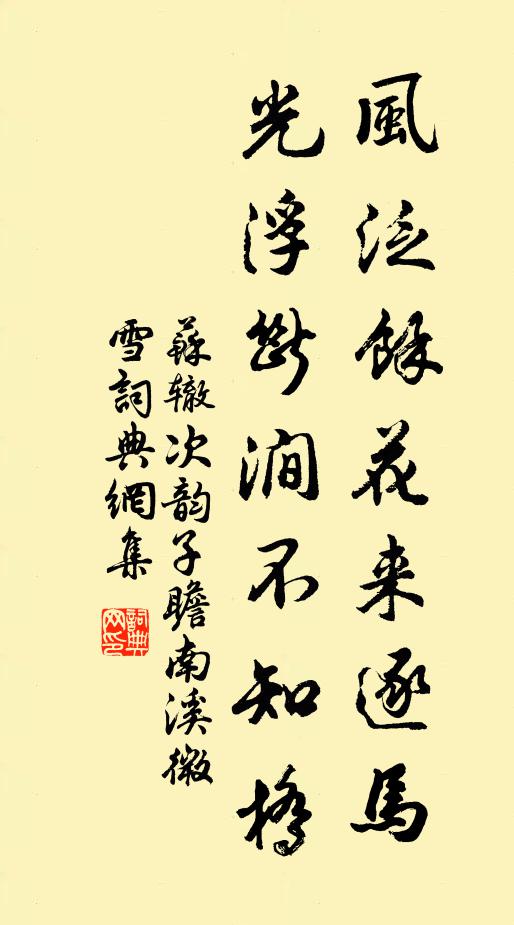 風泛餘花来逐馬
光浮斷澗不知橋
蘇辙次韵子瞻南溪微
雪詞典網集
詞典
网印